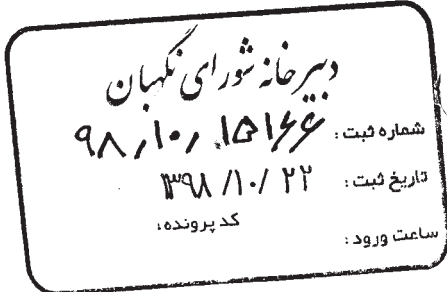 دبیرخانه شورای نگهبان
شماره ثبت: ۹۸/۱۰/۱۵۱۶۶
تاریخ ثبت: ۱۳۹۸/۱۰/۲۲
کد پرونده:
ساعت ورود: